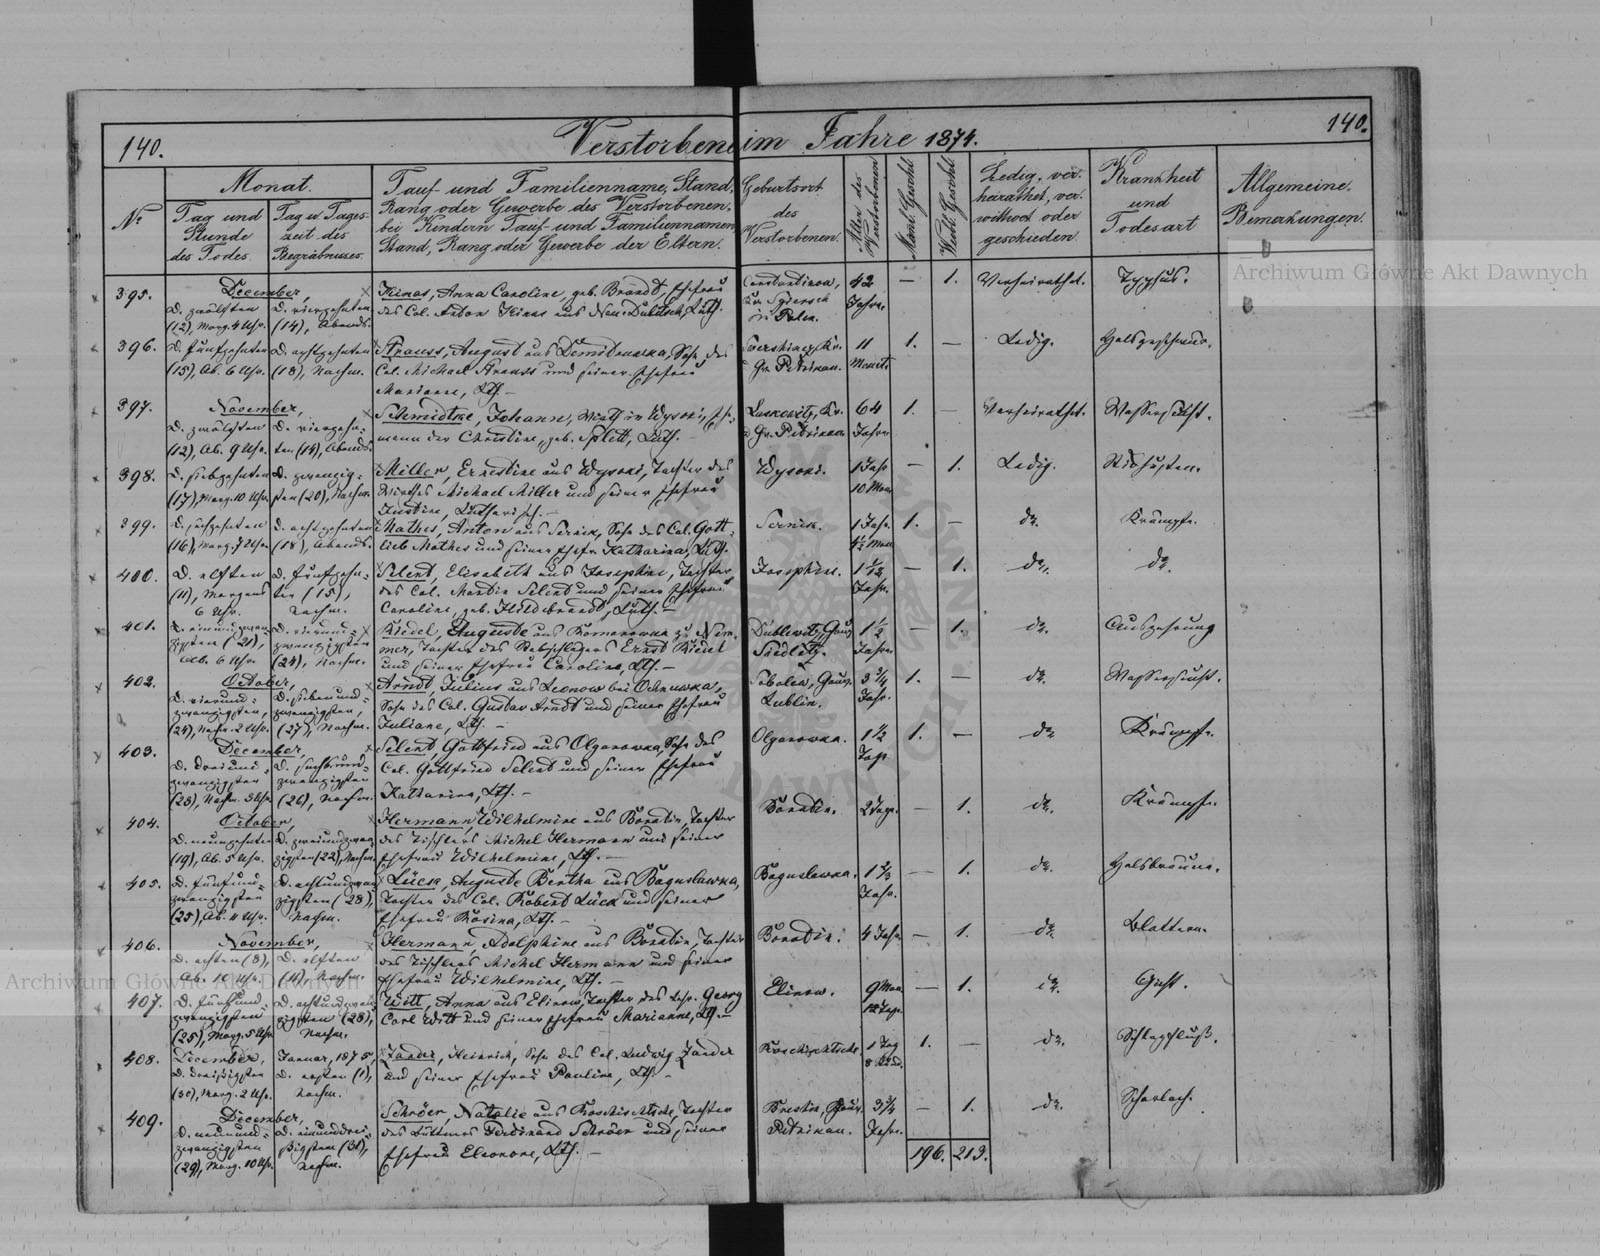 140.
Verstorbene im Jahre 1874.
140.
No
Monat.
Tag und Stunde des Todes.
Tag u. Tages-zeit des Begräbnisses.
Tauf- und Familienname, Stand, Rang oder Gewerbe des Verstorbenen, bei Kindern Tauf- und Familiennamen Stand, Rang oder Gewerbe der Eltern.
Geburtsort des Verstorbenen.
Alter des Verstorbenen
Männl. Geschl.
Weibl. Geschl.
Ledig, ver-heirathet, ver-wittwet oder geschieden.
Krankheit und Todesart
Allgemeine Bemerkungen.
395.
December,
D. zwölften D. vierzehnten
(12), Morg. 4 Uhr. (14), Abends.
Kinas, Anna Caroline, geb. Brandt, Ehefrau
des Col. Anton Kinas aus Luth.
in Polen.
42 Jahre.
— 1. Verheirathet. Typhus.
396.
D. fünfzehnten D. achtzehnten
(15), Ab. 6 Uhr. (18), Nachm.
Strauss, August aus Demidowka, Sohn des
Col. Michael Strauss und seiner Ehefrau
Marianne, Lth. —
Gv. Petrikau.
11 Monate
1. — Ledig.
397.
November,
D. zwölften D. vierzehn-
(12), Ab. 9 Uhr. ten (14), Abends.
Schmidtke, Johann, Wirth in Wysoki, Ehe-
mann der Christine, geb. Splett, Luth. —
Gv. Petrikau
64 Jahre
1. — Verheirathet. Wassersucht.
398.
D. siebzehnten D. zwanzig-
(17), Morg. 10 Uhr. sten (20), Nachm.
Miller, Ernestine aus Wysoki, Tochter des
Wirthes Michael Miller und seiner Ehefrau
Justine, Lutherisch. —
Wysoki.
1 Jahr 10 Mon.
— 1. Ledig. Stickhusten.
399.
D. sechzehnten D. achtzehnten
(16), Morg. 7 Uhr. (18), Abends.
Mathes, Anton aus Sernik, Sohn des Col. Gott-
lieb Mathes und seiner Ehefr. Katharina, Luth.
Sernik.
1 Jahr.
1. — do. Krämpfe.
400.
D. elften D. fünfzehn-
(11), Morgens ten (15),
6 Uhr. Nachm.
Selent, Elisabeth aus Josephine, Tochter
des Col. Martin Selent und seiner Ehefrau
Caroline, geb. Hildebrandt, Luth. —
Josephine.
1 1/12 Jahr.
— 1. do. do.
401.
D. einundzwan- D. vierund-
zigsten (21), zwanzigsten
Ab. 6 Uhr (24), Nachm.
Riedel, Auguste aus Komarowka
Tochter des Stabschlägers Ernst Riedel
und seiner Ehefrau Caroline, Lth. —
Gouv. Siedletz.
1 1/2 Jahre.
— 1. do. Auszehrung
402.
October,
D. vierund- D. siebenund-
zwanzigsten, zwanzigsten,
(24), Nachm. 2 Uhr. (27), Nachm.
Arndt, Julius aus Leonow bei
Sohn des Col. Gustav Arndt und seiner Ehefrau
Juliane, Lth. —
Gouv. Lublin.
3 3/4 Jahr.
1. — do. Wassersucht.
403.
December,
D. dreiund- D. sechsund-
zwanzigsten zwanzigsten
(23), Nachm. 3 Uhr (26), Nachm.
Selent, Gottfried aus Olganowka, Sohn des
Col. Gottfried Selent und seiner Ehefrau
Katharina, Lth. —
Olganowka.
1 1/2 Tage
1. — do. Krämpfe.
404.
October,
D. neunzehnten D. zweiundzwan-
(19), Ab. 5 Uhr. zigsten (22), Nachm.
Hermann, Wilhelmine aus Boratin, Tochter
des Tischlers Michel Hermann und seiner
Ehefrau Wilhelmine, Lth. —
Boratin.
2 Tage.
— 1. do. Krämpfe.
405.
D. fünfund- D. achtundzwan-
zwanzigsten zigsten (28),
(25), Ab. 11 Uhr. Nachm.
Lück, Auguste Bertha aus Boguslawka,
Tochter des Col. Robert Lück und seiner
Ehefrau Rosina, Lth. —
Boguslawka.
Jahr.
— 1. do. Halsbräune.
406.
November,
D. achten (8), D. elften
(11), Nachm.
Hermann, Adolphine aus Boratin, Tochter
des Tischlers Michel Hermann und seiner
Ehefrau Wilhelmine, Lth. —
Boratin.
4 Jahr
— 1. do. Blattern.
407.
D. fünfund- D. achtundzwan-
zwanzigsten zigsten (28),
(25), Morg. 5 Uhr. Nachm.
Witt, Anna aus Elinow, Tochter des Lehr. Georg
Carl Witt und seiner Ehefrau Marianne, Lth. —
Elinow.
9 Mon. 12 Tage.
— 1. do. Gicht.
408.
December, Januar, 1875,
D. dreißigsten D. ersten (1),
(30), Morg. 2 Uhr. Nachm.
Zander, Heinrich, Sohn des Col. Ludwig Zander
und seiner Ehefrau Pauline, Lth. —
1 Tag 8 Stund.
1. — do. Schlagfluß.
409.
December,
D. neunund- D. einunddrei-
zwanzigsten ßigsten (31),
(29), Morg. 10 Uhr. Nachm.
Schröer, Natalie aus Tochter
des Büttners Ferdinand Schröer und seiner
Ehefrau Eleonore, Lth. —
Gouv. Petrikau.
3 3/4 Jahre.
— 1. do. Scharlach.
196. 213.
Archiwum Główne Akt Dawnych
Archiwum Główne Akt Dawnych